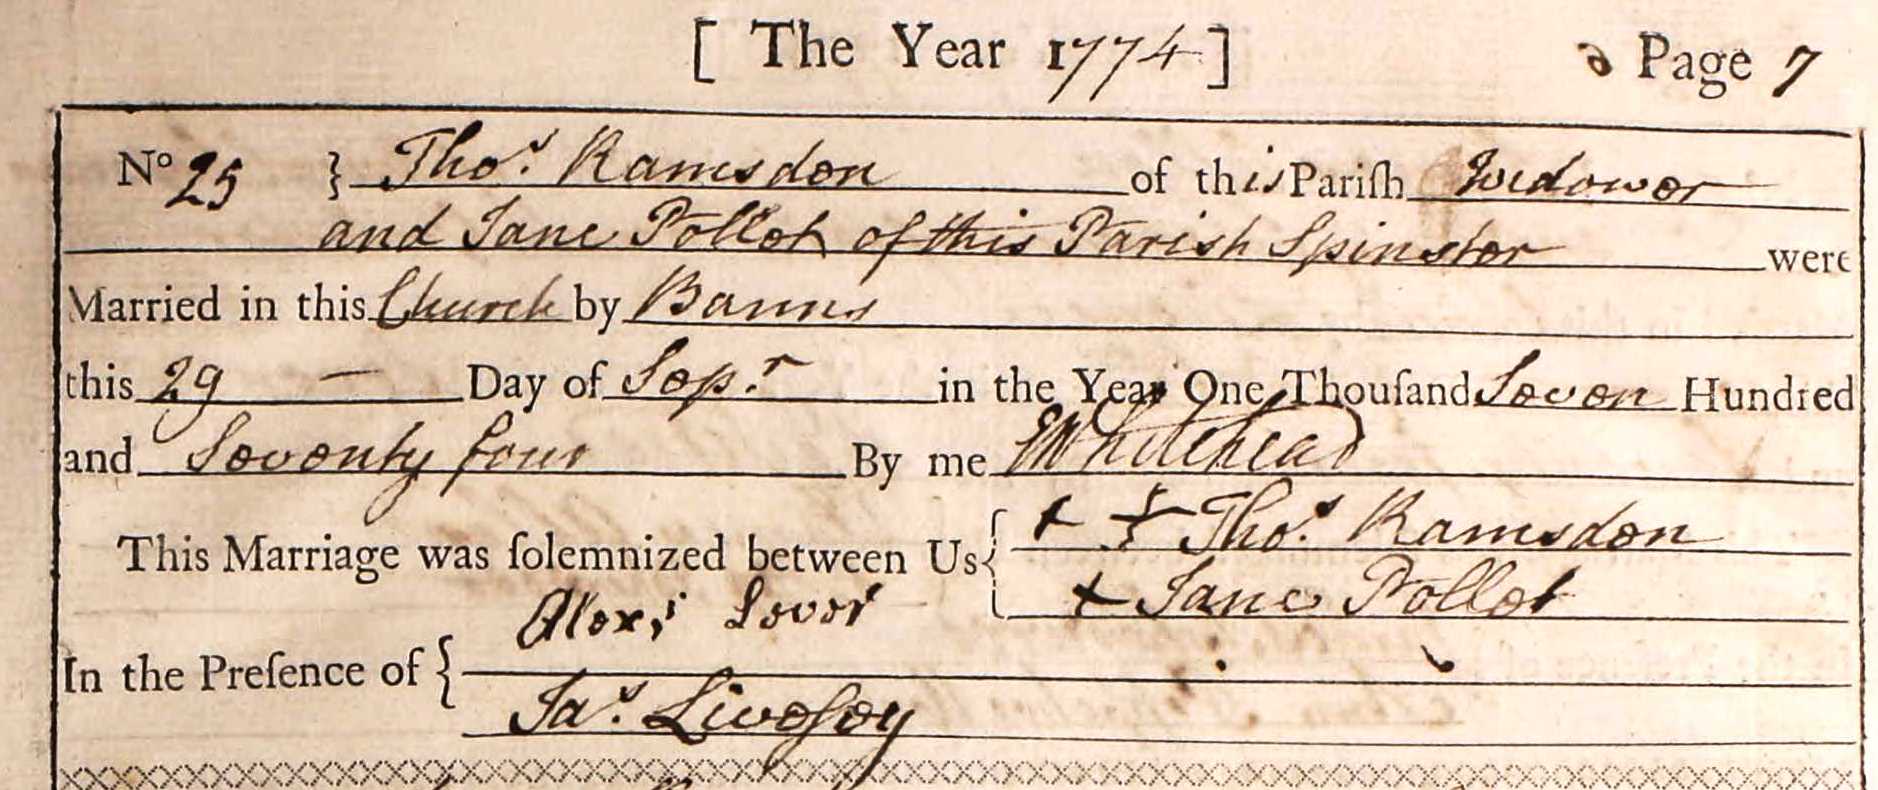 [ The Year 1774 ] Page 7
No 25 } Thos. Ramsden of this Pariſh Widower
and Jane Pollet of this Parish Spinster were
Married in this Church by Banns
this 29 — Day of Sepr in the Year One Thouſand Seven Hundred
and Seventy four By me Whitehead
This Marriage was ſolemnized between Us { + + Thos. Ramsden
+ Jane Pollet
In the Preſence of { Alexr Lever
Jas. Liveſey